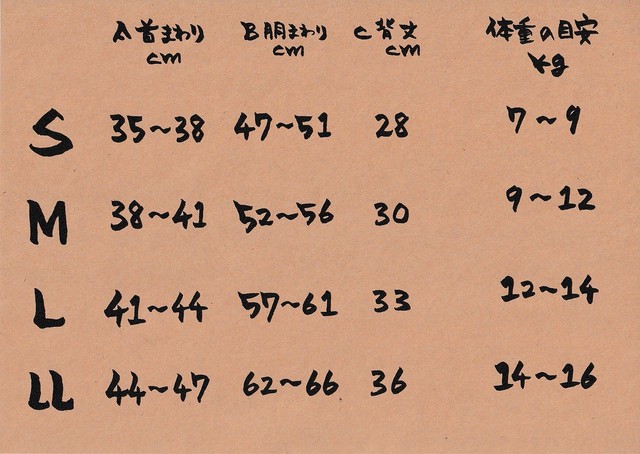 A首まわり B胴まわり C背丈 体重の目安
cm cm cm kg
S 35~38 47~51 28 7~9
M 38~41 52~56 30 9~12
L 41~44 57~61 33 12~14
LL 44~47 62~66 36 14~16